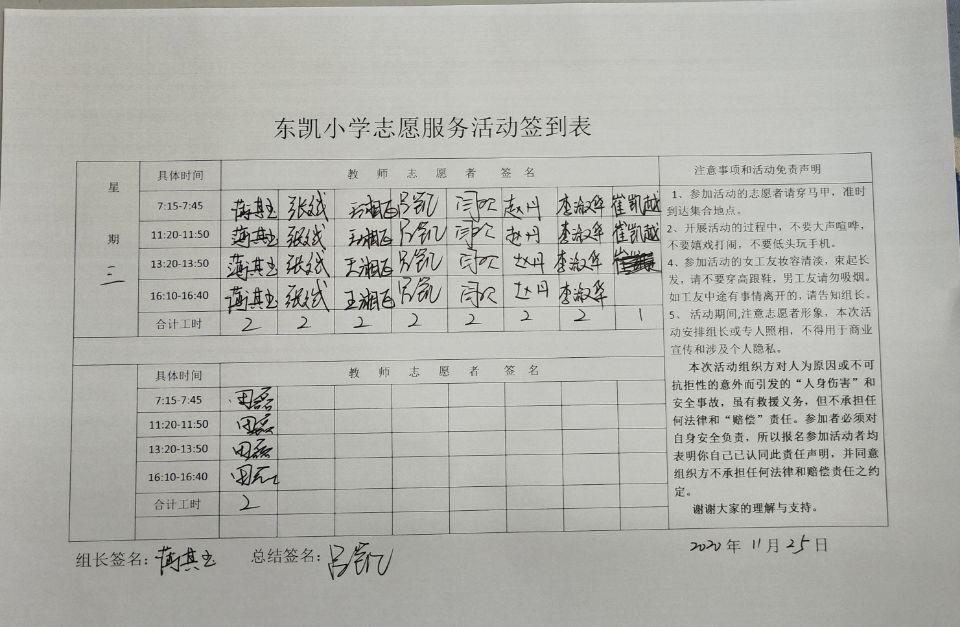 东凯小学志愿服务活动签到表
星期三
具体时间 教师志愿者签名
7:15-7:45 张斌 吕凯 闫欣 赵丹 李淑华 崔凯越
11:20-11:50 张斌 吕凯 闫欣 赵丹 李淑华 崔凯越
13:20-13:50 张斌 吕凯 闫欣 赵丹 李淑华
16:10-16:40 张斌 吕凯 闫欣 赵丹 李淑华
合计工时 2 2 2 2 2 2 2 1
具体时间 教师志愿者签名
7:15-7:45 田磊
11:20-11:50 田磊
13:20-13:50 田磊
16:10-16:40 田磊
合计工时 2
注意事项和活动免责声明
1、参加活动的志愿者请穿马甲，准时
到达集合地点。
2、开展活动的过程中，不要大声喧哗，
不要嬉戏打闹，不要低头玩手机。
4、参加活动的女工友妆容清淡，束起长
发，请不要穿高跟鞋，男工友请勿吸烟。
如工友中途有事情离开的，请告知组长。
5、活动期间,注意志愿者形象，本次活
动安排组长或专人照相，不得用于商业
宣传和涉及个人隐私。
本次活动组织方对人为原因或不可
抗拒性的意外而引发的“人身伤害”和
安全事故，虽有救援义务，但不承担任
何法律和“赔偿”责任。参加者必须对
自身安全负责，所以报名参加活动者均
表明你自己已认同此责任声明，并同意
组织方不承担任何法律和赔偿责任之约
定。
谢谢大家的理解与支持。
组长签名： 总结签名：吕凯
2020年11月25日